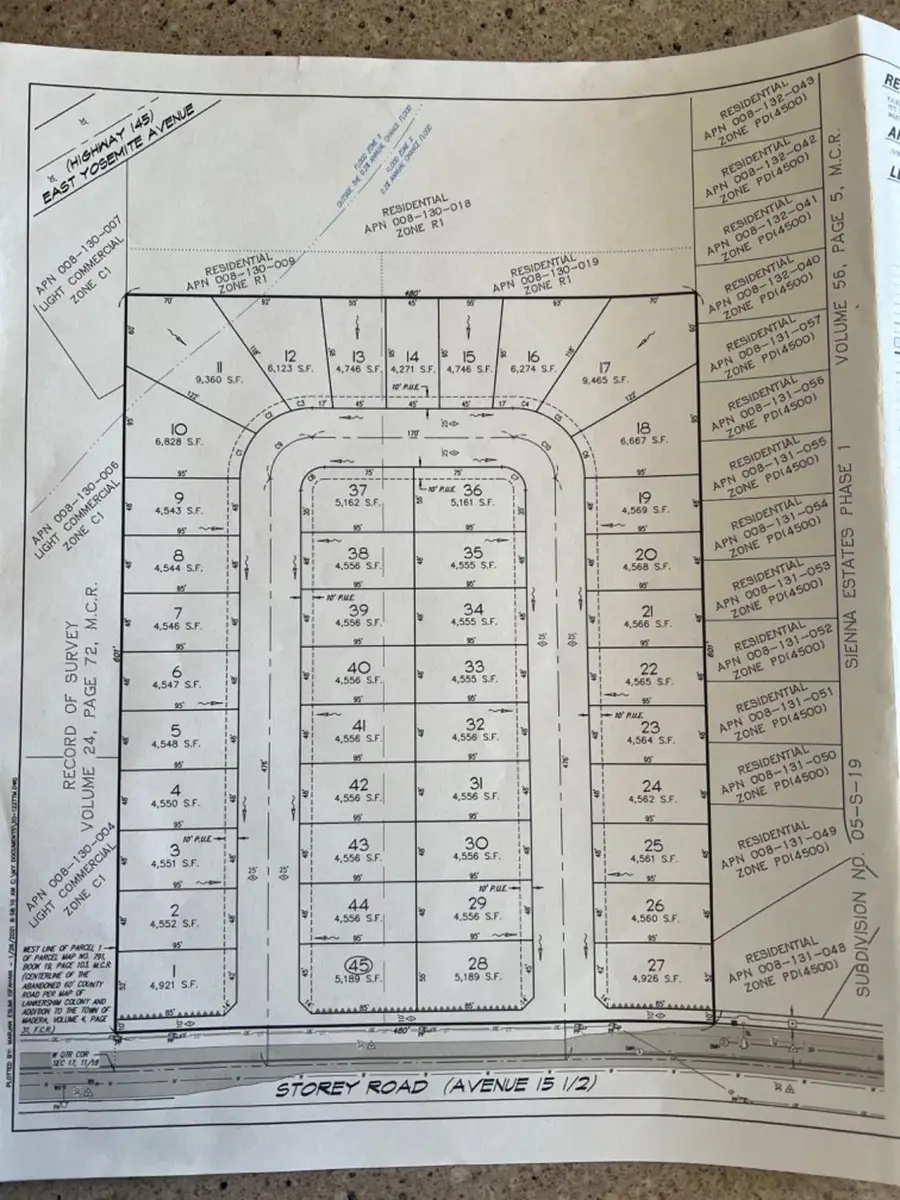 (HIGHWAY 145)
EAST YOSEMITE AVENUE
FLOOD ZONE X
OUTSIDE THE 0.2% ANNUAL CHANCE FLOOD
FLOOD ZONE X
0.2% ANNUAL CHANCE FLOOD
RESIDENTIAL
APN 008-130-018
ZONE R1
RESIDENTIAL
APN 008-130-009
ZONE R1
RESIDENTIAL
APN 008-130-019
ZONE R1
APN 008-130-007
LIGHT COMMERCIAL
ZONE C1
APN 008-130-006
LIGHT COMMERCIAL
ZONE C1
RECORD OF SURVEY
VOLUME 24, PAGE 72, M.C.R.
APN 008-130-004
LIGHT COMMERCIAL
ZONE C1
WEST LINE OF PARCEL 1
OF PARCEL MAP NO. 791,
BOOK 19, PAGE 103, M.C.R.
(CENTERLINE OF THE
ABANDONED 60' COUNTY
ROAD PER MAP OF
LANKERSHIM COLONY AND
ADDITION TO THE TOWN OF
MADERA, VOLUME 4, PAGE
31, F.C.R.)
RESIDENTIAL
APN 008-132-043
ZONE PD(4500)
RESIDENTIAL
APN 008-132-042
ZONE PD(4500)
RESIDENTIAL
APN 008-132-041
ZONE PD(4500)
RESIDENTIAL
APN 008-132-040
ZONE PD(4500)
RESIDENTIAL
APN 008-131-057
ZONE PD(4500)
RESIDENTIAL
APN 008-131-056
ZONE PD(4500)
RESIDENTIAL
APN 008-131-055
ZONE PD(4500)
RESIDENTIAL
APN 008-131-054
ZONE PD(4500)
RESIDENTIAL
APN 008-131-053
ZONE PD(4500)
RESIDENTIAL
APN 008-131-052
ZONE PD(4500)
RESIDENTIAL
APN 008-131-051
ZONE PD(4500)
RESIDENTIAL
APN 008-131-050
ZONE PD(4500)
RESIDENTIAL
APN 008-131-049
ZONE PD(4500)
RESIDENTIAL
APN 008-131-048
ZONE PD(4500)
SUBDIVISION NO. 05-S-19 SIENNA ESTATES PHASE 1 VOLUME 56, PAGE 5, M.C.R.
480'
70' 92' 55' 45' 55' 93' 70'
11
9,360 S.F.
12
6,123 S.F.
13
4,746 S.F.
14
4,271 S.F.
15
4,746 S.F.
16
6,274 S.F.
17
9,465 S.F.
10' P.U.E.
122'
122'
C3 17' 45' 45' 17' C4
170'
10
6,828 S.F.
95'
9
4,543 S.F.
95'
8
4,544 S.F.
95'
7
4,546 S.F.
95'
6
4,547 S.F.
95'
5
4,548 S.F.
95'
4
4,550 S.F.
95'
10' P.U.E.
3
4,551 S.F.
95'
2
4,552 S.F.
95'
1
4,921 S.F.
85'
75' 75'
10' P.U.E.
37
5,162 S.F.
36
5,161 S.F.
95' 95'
38
4,556 S.F.
35
4,555 S.F.
95' 95'
10' P.U.E.
39
4,556 S.F.
34
4,555 S.F.
95' 95'
40
4,556 S.F.
33
4,555 S.F.
95' 95'
41
4,556 S.F.
32
4,556 S.F.
95' 95'
42
4,556 S.F.
31
4,556 S.F.
95' 95'
43
4,556 S.F.
30
4,556 S.F.
95'
10' P.U.E.
44
4,556 S.F.
29
4,556 S.F.
95' 95'
45
5,189 S.F.
28
5,189 S.F.
85' 85'
18
6,667 S.F.
95'
19
4,569 S.F.
95'
20
4,568 S.F.
95'
21
4,566 S.F.
95'
22
4,565 S.F.
95'
10' P.U.E.
23
4,564 S.F.
95'
24
4,562 S.F.
95'
25
4,561 S.F.
95'
26
4,560 S.F.
95'
27
4,926 S.F.
85'
601'
601'
476'
476'
480'
W QTR COR
SEC 17, 11/18
STOREY ROAD (AVENUE 15 1/2)